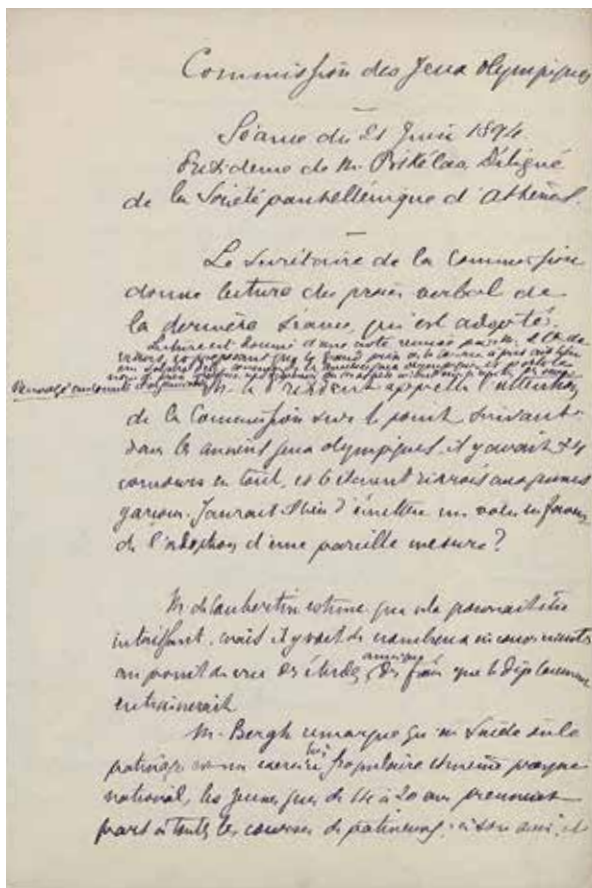 Commission des Jeux Olympiques
Séance du 21 Juin 1894.
Présidence de M. Bikélas, Délégué
de la Société panhellénique d'Athènes.
Le Secrétaire de la Commission
donne lecture du procès verbal de
la dernière séance, qui est adopté.
Lecture est donnée d'une note remise par M.
proposant que le grand prix de la course à pied
Renvoyé au comité d'organisation
M. le Président appelle l'attention
de la Commission sur le point suivant
dans les anciens jeux olympiques, il y avait 24
concours en tout, et 6 étaient réservés aux jeunes
garçons. Y aurait il lieu d'émettre un voeu en faveur
de l'adoption d'une pareille mesure ?
M. de Coubertin estime que cela pourrait être
intéressant, mais il y voit de nombreux inconvénients
au point de vue des études, des frais que le déplacement
entrainerait
M. Bergh remarque qu'en Suède où le
patinage est un exercice très populaire et même presque
national, les jeunes gens de 14 à 20 ans prennent
part à toutes les courses de patineurs,